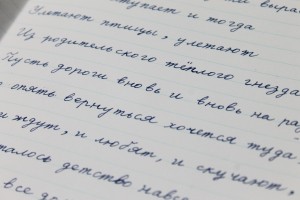 ступает и тогда
Улетают птицы, улетают
Из родительского тёплого гнезда
Пусть дороги вновь и вновь на ра
опять вернуться хочется туда
и ждут, и любят, и скучают,
талось детство навсе
все до